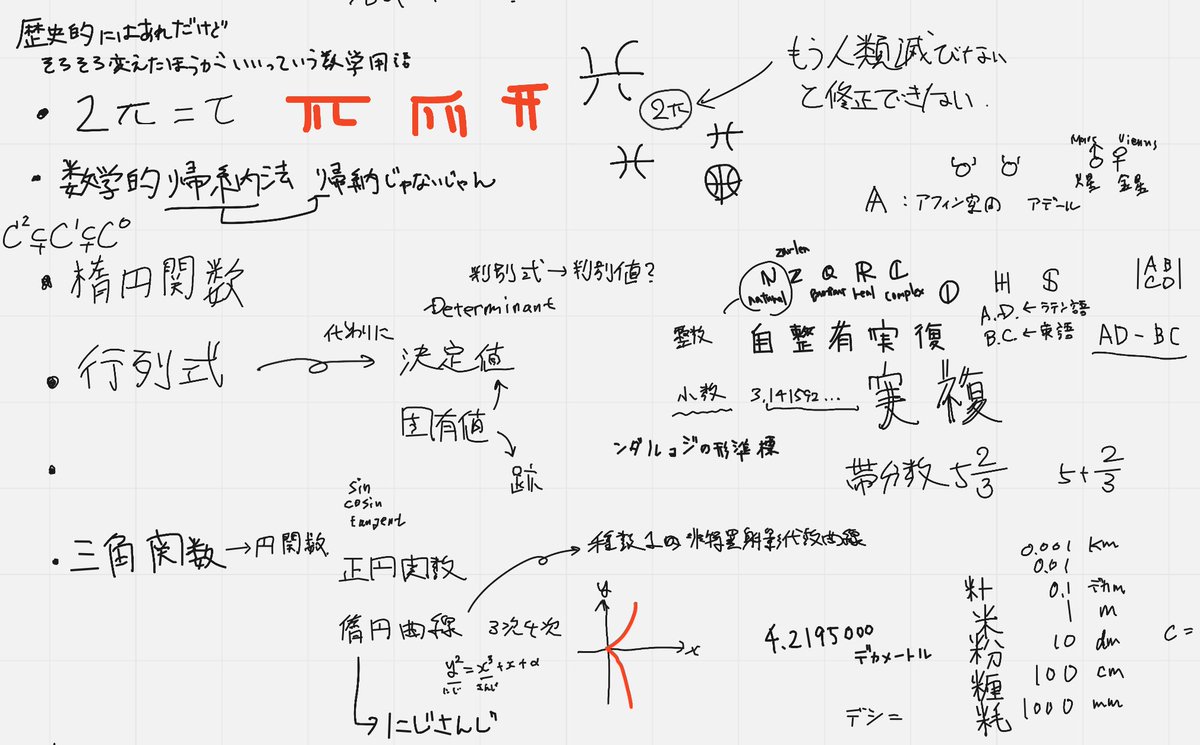 歴史的にはあれだけど
そろそろ変えたほうがいいっていう数学用語
• 2π = τ
2π
もう人類滅びない
と修正できない.
• 数学的帰納法 帰納じゃないじゃん
Mars
火星
金星
A : アフィン空間 アデール
C² ⊊ C¹ ⊊ C⁰
• 楕円関数
判別式 → 判別値?
Determinant
zahlen
N Z Q R C
natural
real complex
①
H S
A.D. ← ラテン語
B.C. ← 英語
AB
CD
AD-BC
整数
自 整 有 実 復
• 行列式
代わりに
決定値
固有値
跡
小数 3.141592...
実 複
ンダルョジの形準標
帯分数 5 2/3 5+2/3
•
sin
cosin
tangent
• 三角関数 → 円関数
正円関数
種数1の非特異射影代数曲線
楕円曲線 3次4次
y² = x³+x+a
にじ さんじ
にじさんじ
y
x
4.2195000
デカメートル
デシ =
0.001 km
0.01
籵 0.1 デカm
米 1 m
粉 10 dm
糎 100 cm
粍 1000 mm
C =